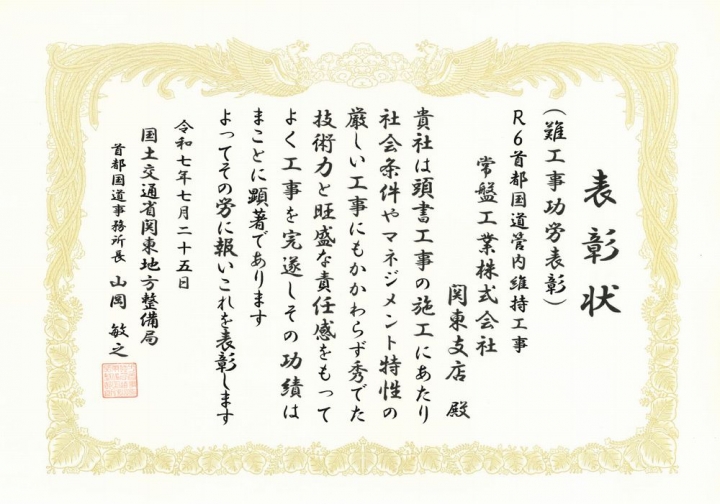 表彰状
(難工事功労表彰)
R6首都国道管内維持工事
常盤工業株式会社
関東支店 殿
貴社は頭書工事の施工にあたり
社会条件やマネジメント特性の
厳しい工事にもかかわらず秀でた
技術力と旺盛な責任感をもって
よく工事を完遂しその功績は
まことに顕著であります
よってその労に報いこれを表彰します
令和七年七月二十五日
国土交通省関東地方整備局
首都国道事務所長 山岡 敏之